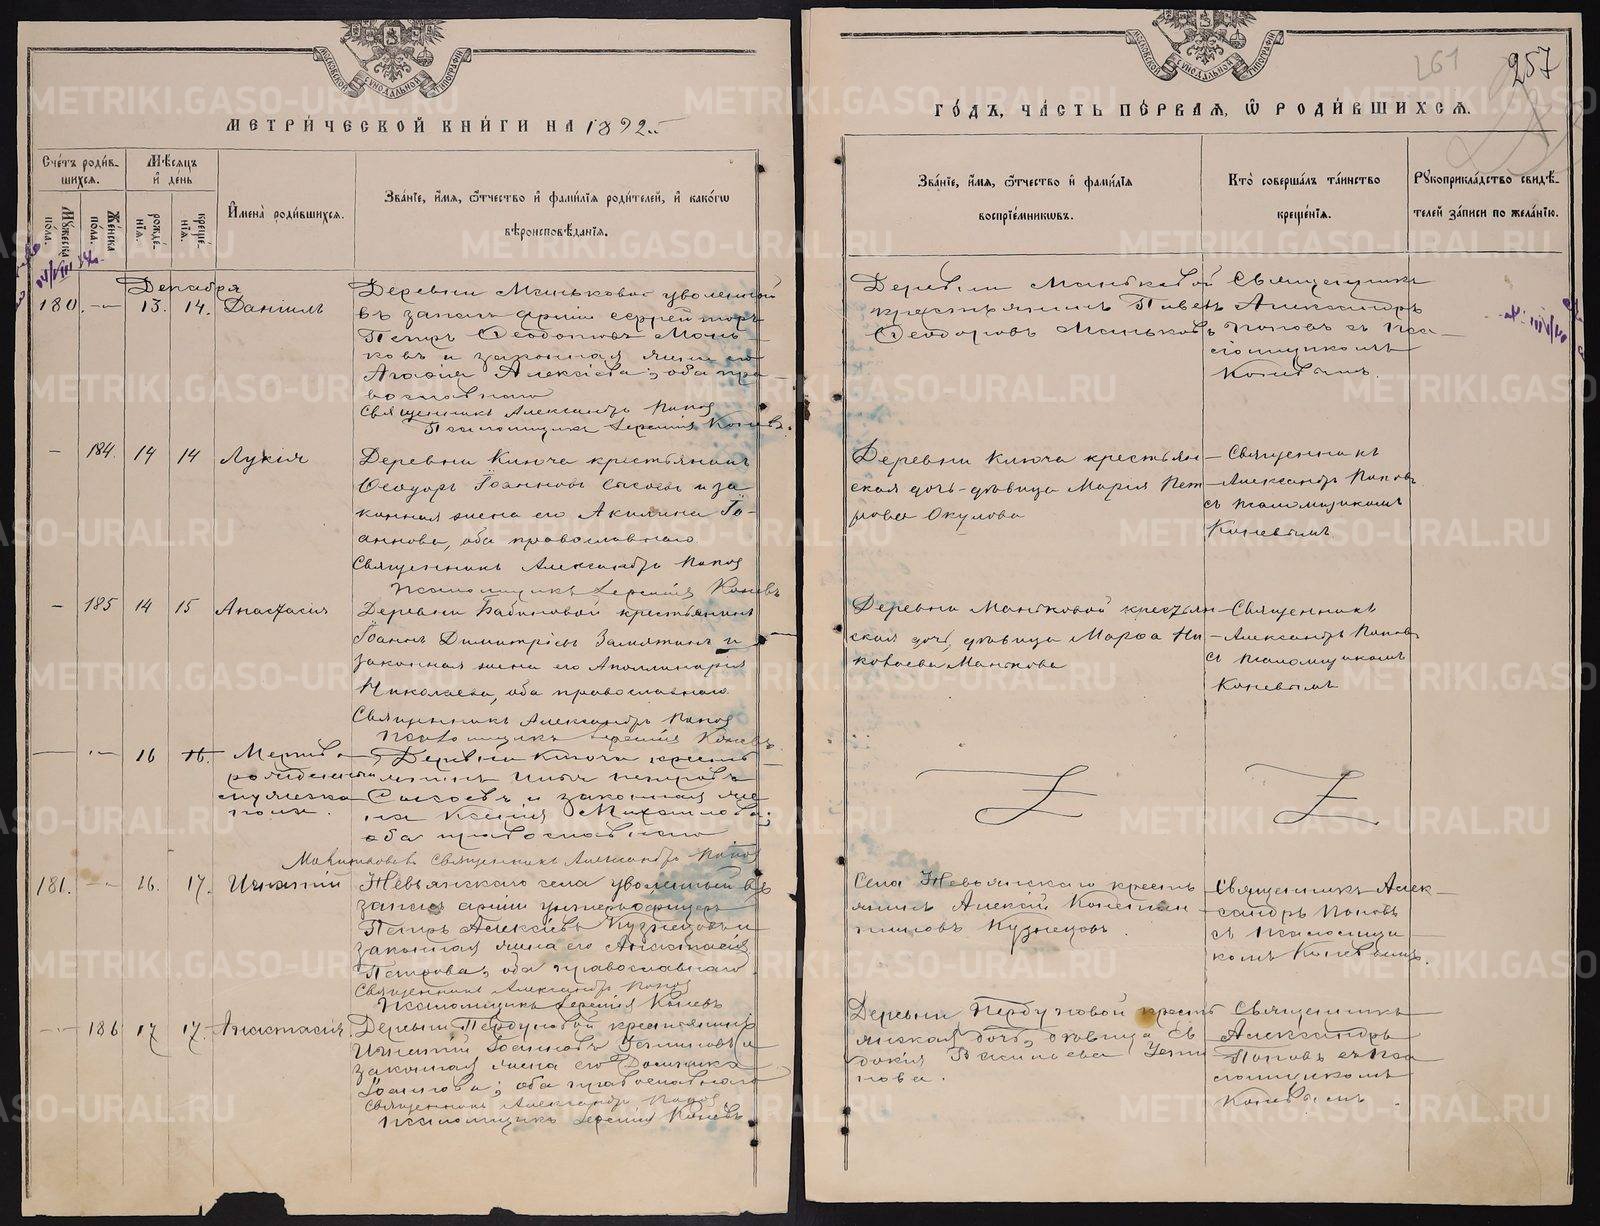 МЕТРИ́ЧЕСКОЙ КНИ́ГИ НА 1892
Сче́тъ роди́в-
шихся.
Мѣсяцъ
и҆ де́нь
Мꙋ́жеска
по́ла.
Же́нска
по́ла.
рожде́-
нїѧ.
креще́-
нїѧ.
И҆мена̀ роди́вшихся.
Зва́нїе, и҆́мѧ, ѻ҆́тчество и҆ фами́лїѧ роди́телей, и҆ како́гѡ
вѣроисповѣ́данїѧ.
Декабря
180. 13. 14. Данiилъ
Деревни Маньковой уволенный
въ запасъ армiи ефрейторъ
Петръ Ѳеодотовъ Мань-
ковъ и законная жена его
Агафiя Алексiева; оба пра-
вославнаго
Священникъ Александръ Попов
Псаломщикъ Iеремiя Коневъ.
184. 14 14 Лукiя
Деревни Ключа крестьянинъ
Ѳеодоръ Iоанновъ Сысоевъ и за
конная жена его Акилина Iо-
аннова, оба православнаго
Священникъ Александръ Попов
Псаломщикъ Iеремiя Коневъ
185 14 15 Анастасiя
Деревни Бабиновой крестьянинъ
Iоаннъ Димитрiевъ Замятинъ и
законная жена его Аполлинарiя
Николаева, оба православнаго
Священникъ Александръ Попов
Псаломщикъ Iеремiя Коневъ
16 16. Мертво-
рожденный
мужеска
пола.
Деревни Ключа кресть
янинъ Илья Петровъ
Сысоевъ и законная же
на Ксенiя Михаилова;
оба православнаго
Священникъ Александръ Попов
181. 16. 17. Игнатiй
Невьянскаго села уволенный въ
запасъ армiи унтеръ-офицеръ
Петръ Алексiевъ Кузнецовъ и
законная жена его Анастасiя
Петрова; оба православнаго
Священникъ Александръ Попов
Псаломщикъ Iеремiя Коневъ
186 17 17. Анастасiя
Деревни крестьянинъ
Игнатiй Iоанновъ Устиновъ и
законная жена его Домника
Iоаннова; оба православнаго
Священникъ Александръ Попов
Псаломщикъ Iеремiя Коневъ
261
257
ГО́ДЪ, ЧА́СТЬ ПЕ́РВАЯ, Ѡ҆ РОДИ́ВШИХСЯ.
Зва́нїе, и҆́мѧ, ѻ҆́тчество и҆ фами́лїѧ
воспрїе́мниковъ.
Кто̀ соверша́лъ та́инство
креще́нїѧ.
Рꙋкоприкла́дство свидѣ́-
телей за́писи по жела́нїю.
Деревни Маньковой
крестьянинъ Павелъ
Ѳеодоровъ Маньковъ
Священникъ
Александръ
Поповъ съ Пса-
ломщикомъ
Коневымъ.
Деревни Ключа крестьян-
ская дочь-дѣвица Марiя Пет
рова Окулова
Священникъ
Александръ Поповъ
съ псаломщикомъ
Коневымъ
Деревни Маньковой крестьян
ская дочь, дѣвица Марѳа Ни
колаева Манькова
Священникъ
Александръ Поповъ
съ псаломщикомъ
Коневымъ
Села Невьянскаго кресть
янинъ Алексiй Констан
тиновъ Кузнецовъ.
Священникъ Алек-
сандръ Поповъ
съ псаломщи
комъ Коневымъ.
Деревни кресть
янская дочь, дѣвица Ев
докiя Васильева Усти
нова.
Священникъ
Александръ
Поповъ съ пса
ломщикомъ
Коневымъ